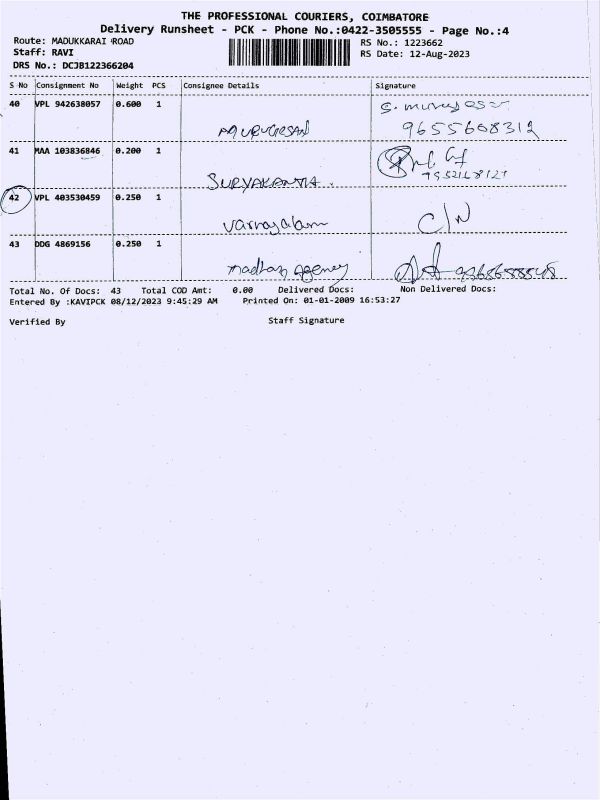 THE PROFESSIONAL COURIERS, COIMBATORE
Delivery Runsheet - PCK - Phone No.:0422-3505555 - Page No.:4
Route: MADUKKARAI ROAD
Staff: RAVI
DRS No.: DCJB122366204
RS No.: 1223662
RS Date: 12-Aug-2023
S No Consignment No Weight PCS Consignee Details Signature
40 VPL 942638057 0.600 1
9655608312
41 MAA 103836846 0.200 1
SURYAKANTA.
42 VPL 403530459 0.250 1
C/N
43 DDG 4869156 0.250 1
madhan agency
Total No. Of Docs: 43 Total COD Amt: 0.00 Delivered Docs: Non Delivered Docs:
Entered By :KAVIPCK 08/12/2023 9:45:29 AM Printed On: 01-01-2009 16:53:27
Verified By Staff Signature